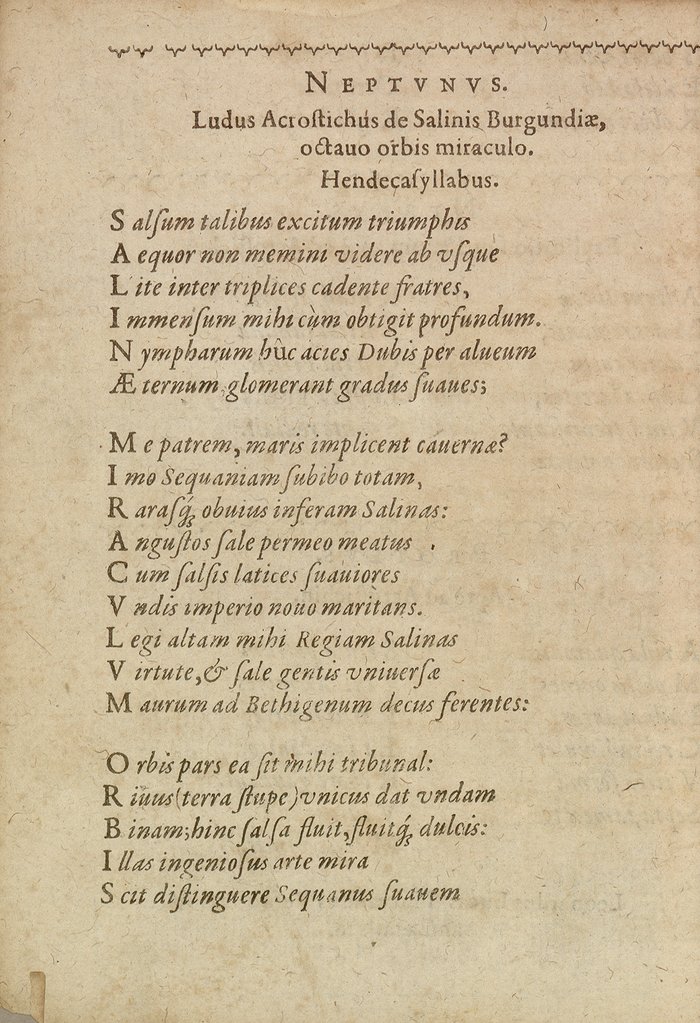 NEPTVNVS.
Ludus Acroſtichus de Salinis Burgundiæ,
octauo orbis miraculo.
Hendecaſyllabus.
Salſum talibus excitum triumphis
Aequor non memini videre ab vſque
Lite inter triplices cadente fratres,
Immenſum mihi cùm obtigit profundum.
Nympharum hûc acies Dubis per alueum
Æternum glomerant gradus ſuaues;
Me patrem, maris implicent cauernæ?
Imo Sequaniam ſubibo totam,
Raraſq́; obuius inferam Salinas:
Anguſtos ſale permeo meatus.
Cum ſalſis latices ſuauiores
Vndis imperio nouo maritans.
Legi altam mihi Regiam Salinas
Virtute, & ſale gentis vniuerſæ
Maurum ad Bethigenum decus ferentes:
Orbis pars ea ſit mihi tribunal:
Riuus (terra ſtupe) vnicus dat vndam
Binam; hinc ſalſa fluit, fluitq́; dulcis:
Illas ingenioſus arte mira
Scit diſtinguere Sequanus ſuauem